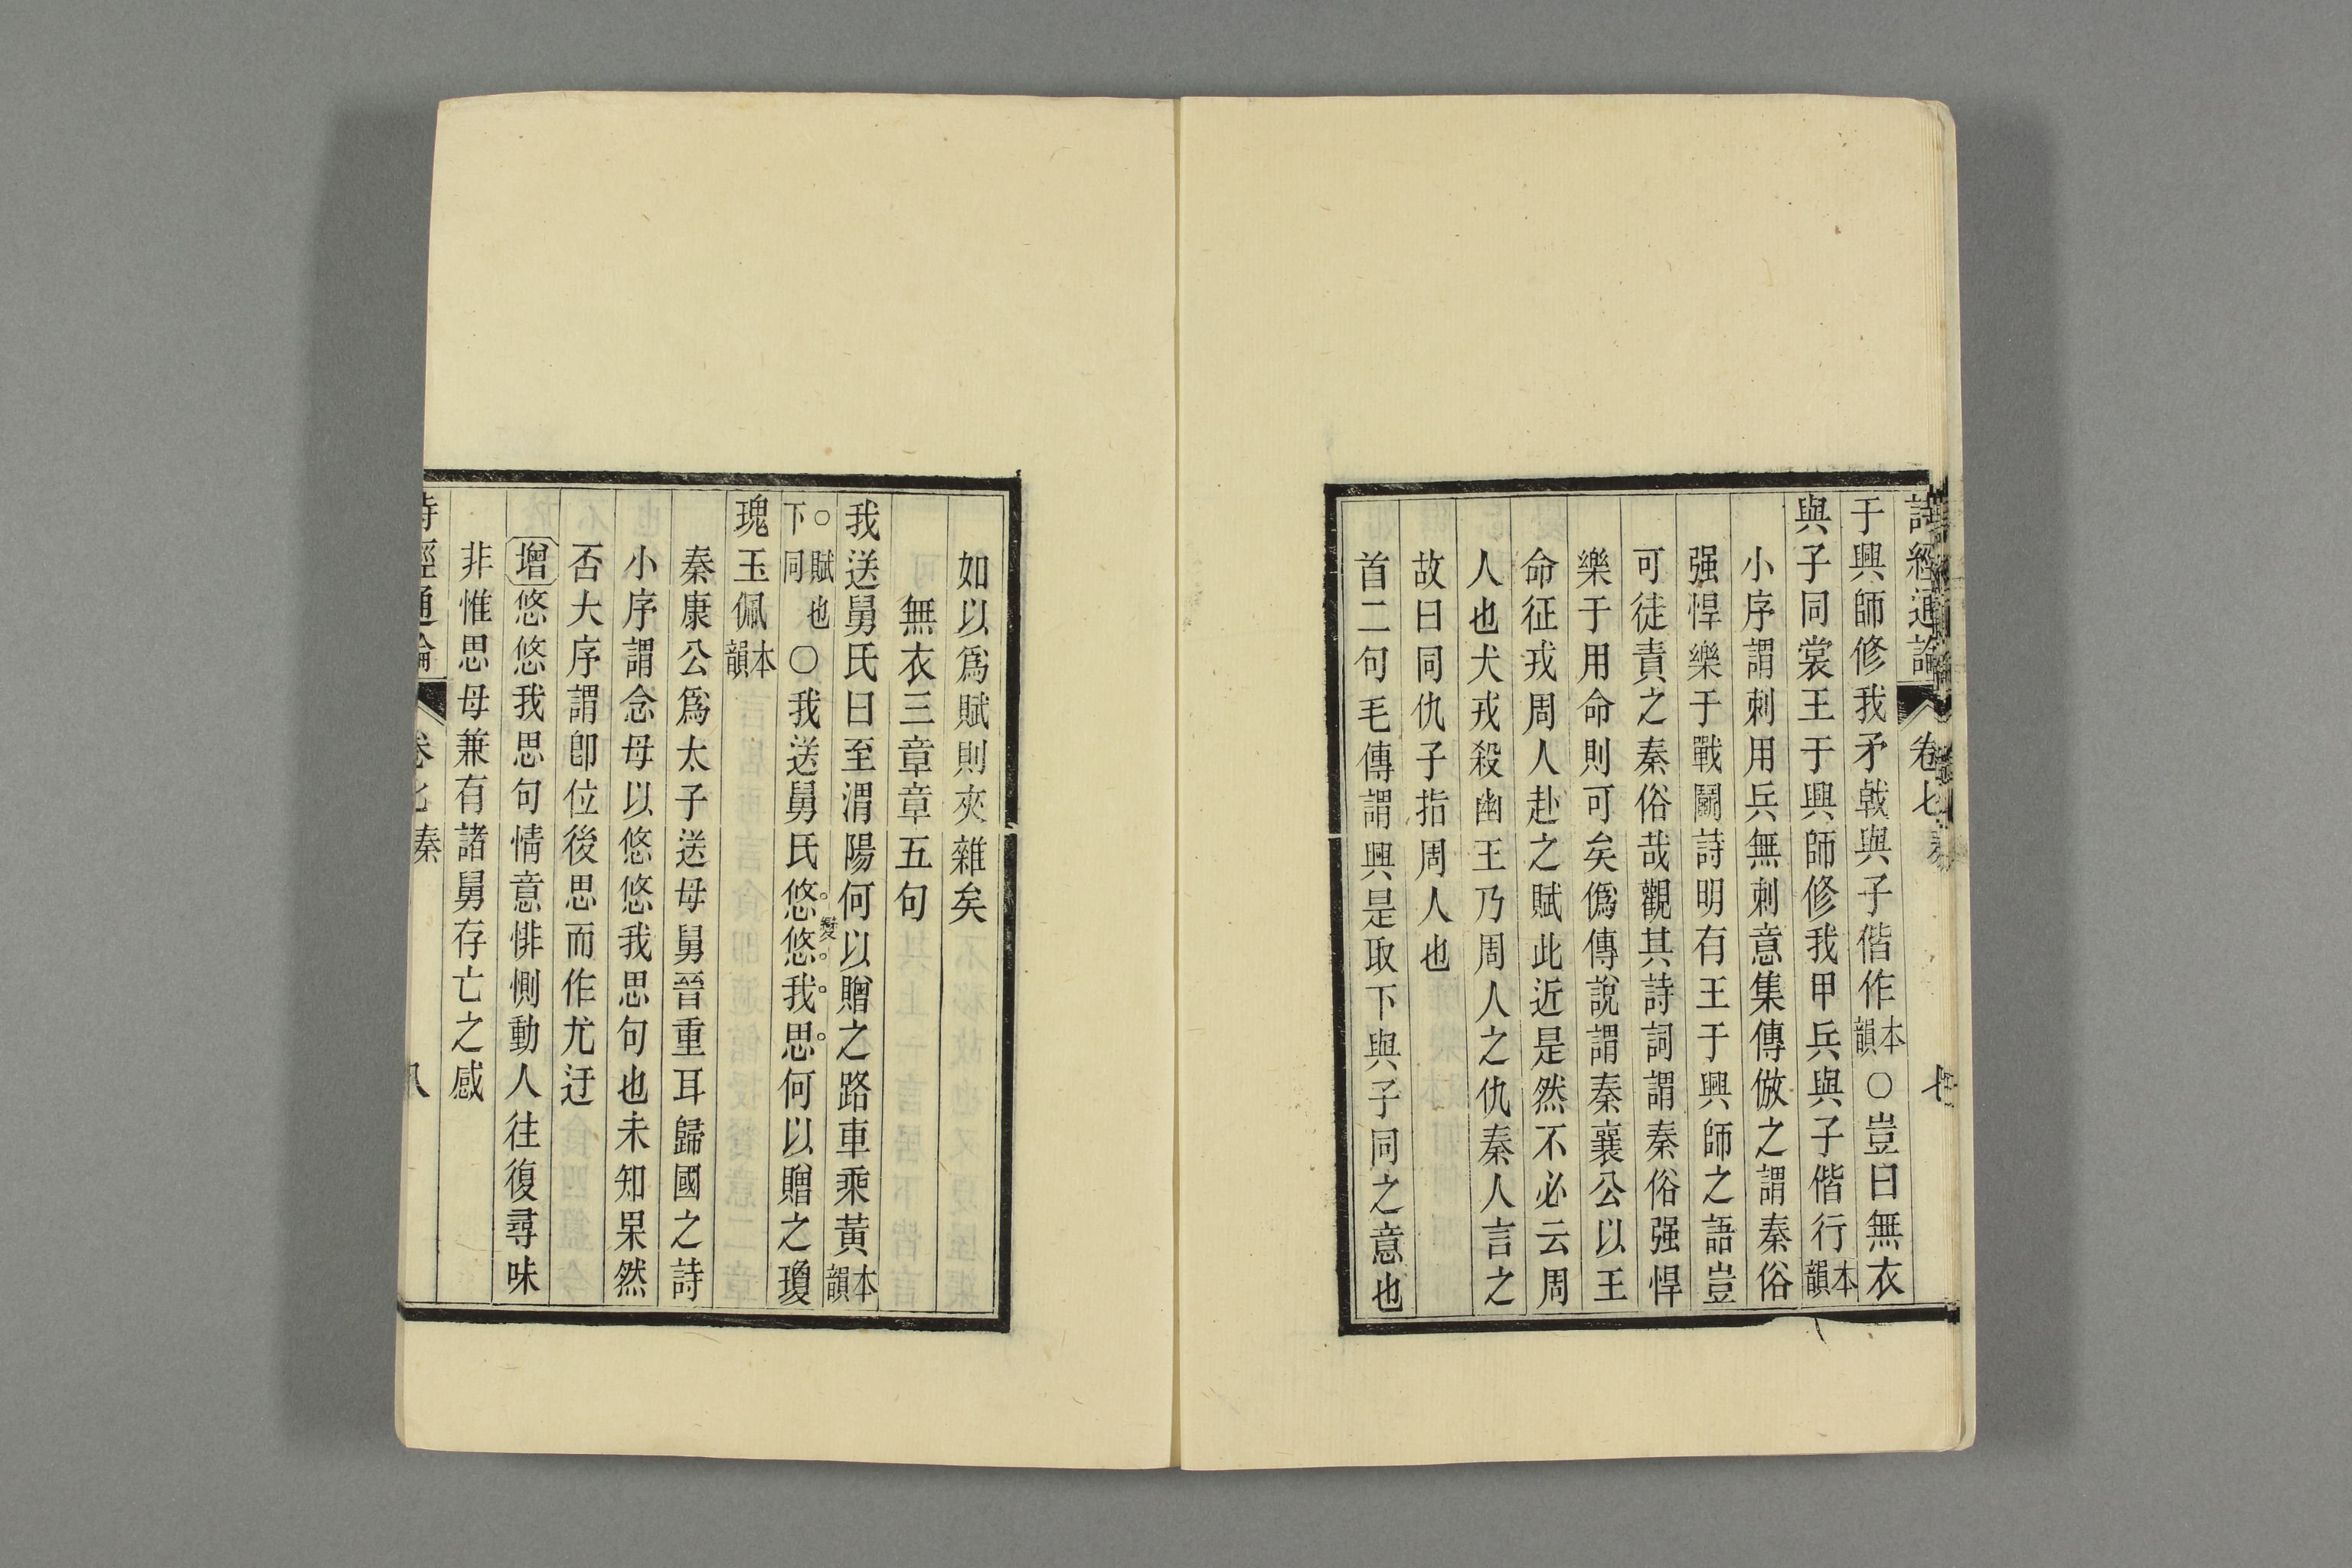 詩經通論 卷七 秦 七
于興師修我矛戟與子偕作本韻○豈曰無衣
與子同裳王于興師修我甲兵與子偕行本韻
小序謂刺用兵無刺意集傳倣之謂秦俗
强悍樂于戰鬭詩明有王于興師之語豈
可徒責之秦俗哉觀其詩詞謂秦俗强悍
樂于用命則可矣僞傳說謂秦襄公以王
命征戎周人赴之賦此近是然不必云周
人也犬戎殺幽王乃周人之仇秦人言之
故曰同仇子指周人也
首二句毛傳謂興是取下與子同之意也
如以爲賦則夾雜矣
無衣三章章五句
我送舅氏曰至渭陽何以贈之路車乘黃本韻
○賦也下同○我送舅氏悠悠我思何以贈之瓊
變
瑰玉佩本韻
秦康公爲太子送母舅晉重耳歸國之詩
小序謂念母以悠悠我思句也未知果然
否大序謂卽位後思而作尤迂
增悠悠我思句情意悱惻動人往復尋味
非惟思母兼有諸舅存亡之感
詩經通論 卷七 秦 八